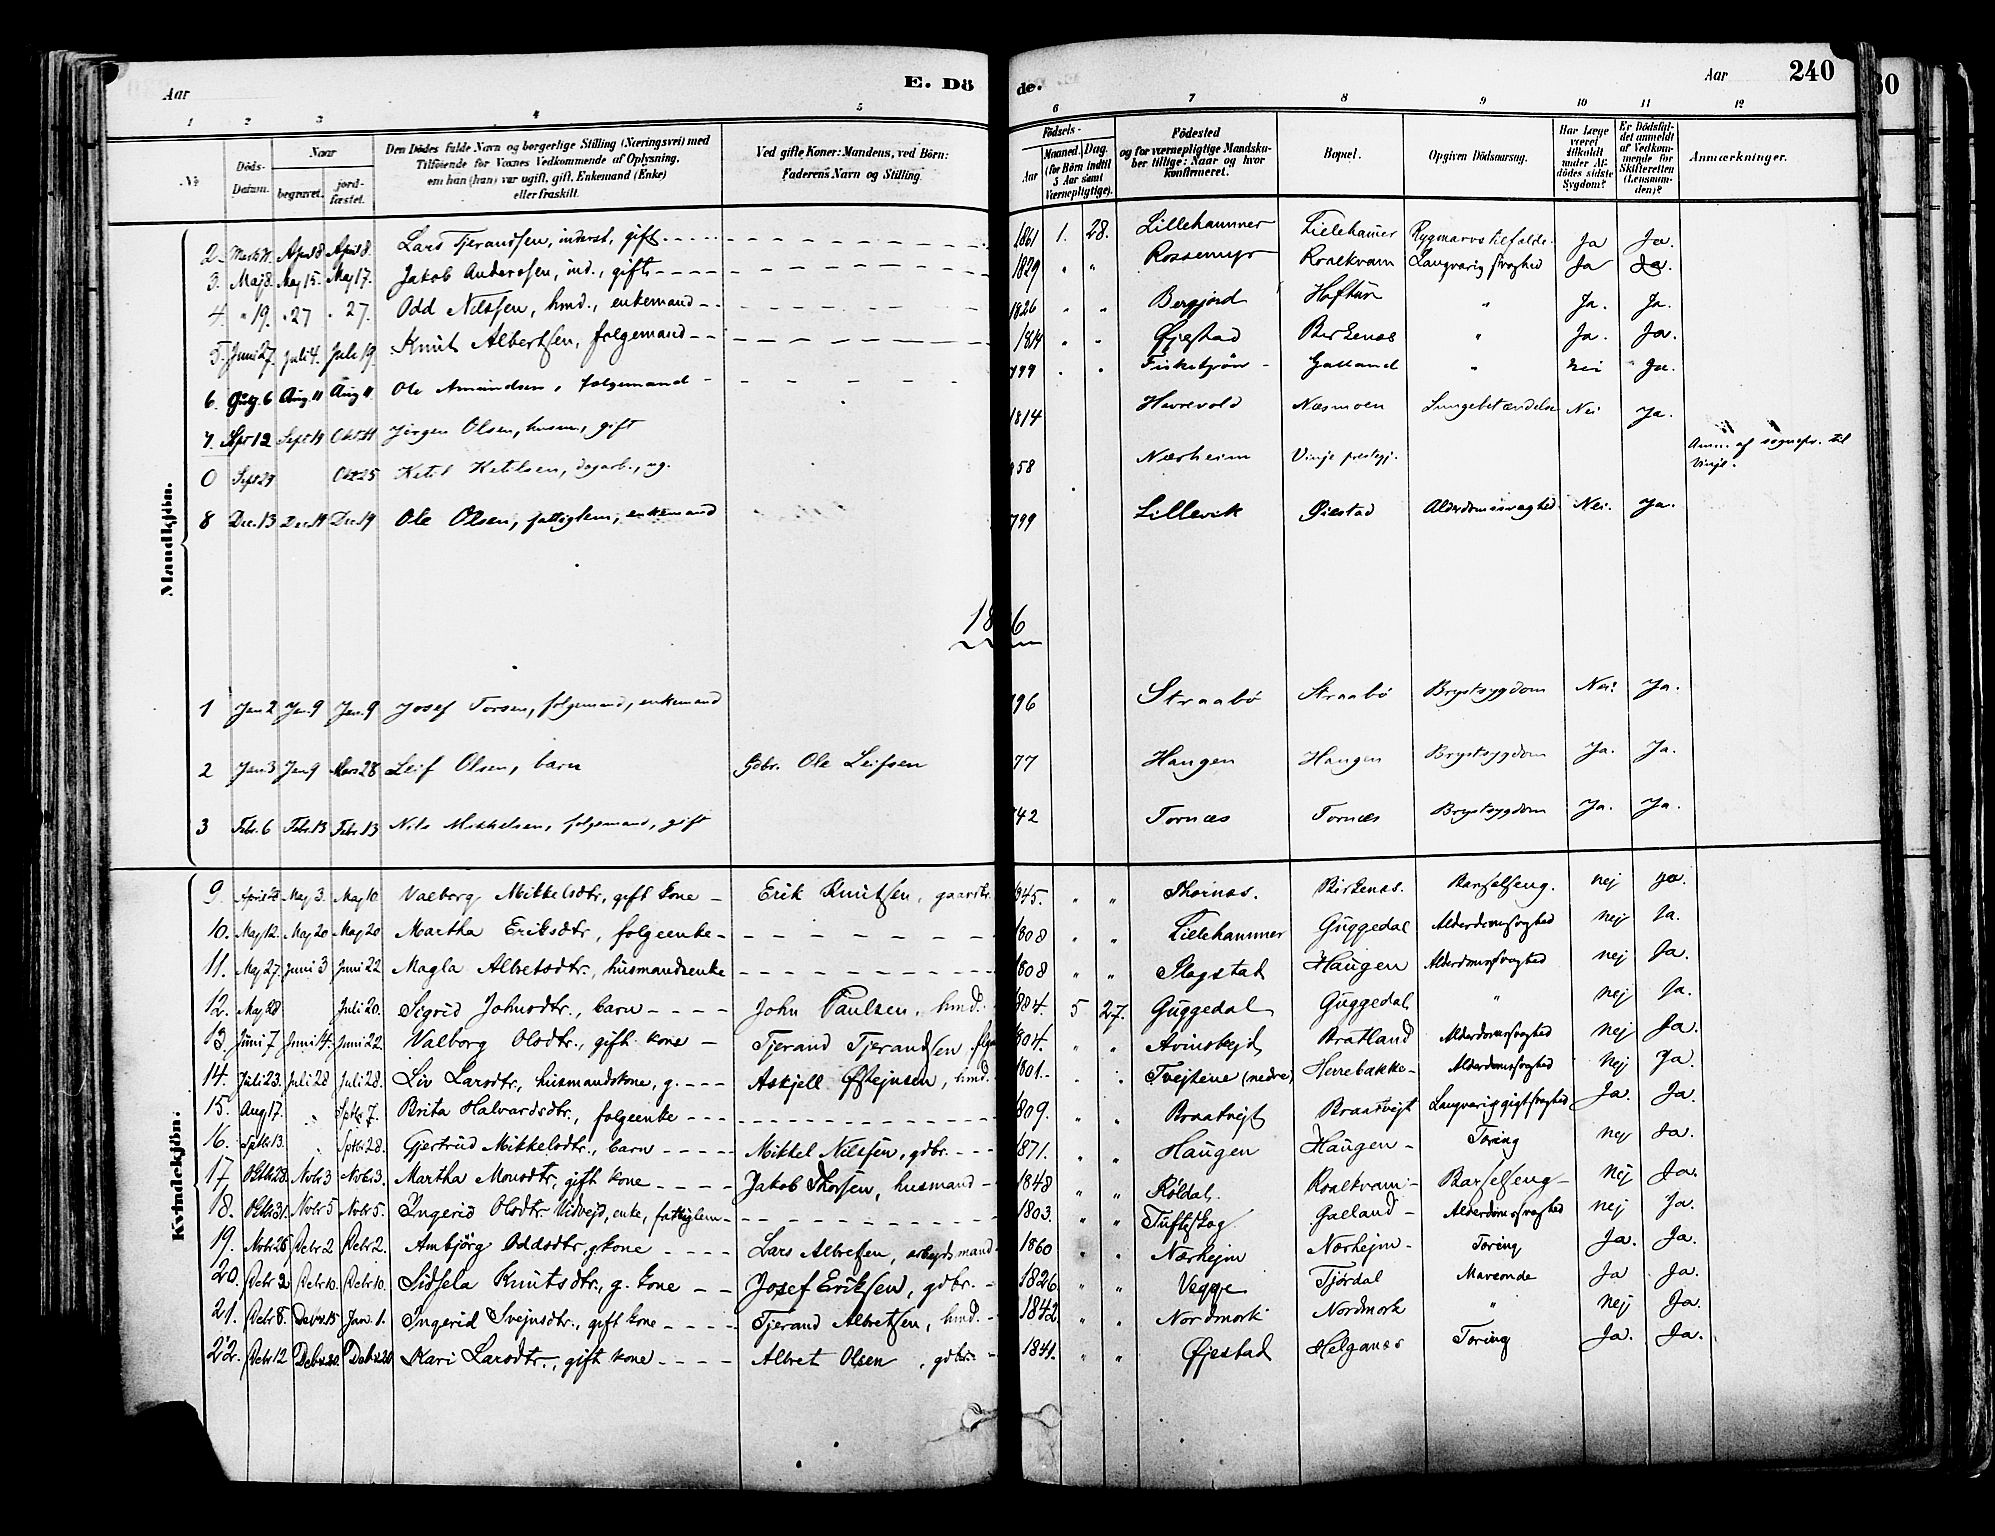 Aar
E. Dö
de.
Aar
240
1 2 3 4 5 6 7 8 9 10 11 12
No.
Döds-Datum.
Naar
begravet.
jordfæstet.
Den Dödes fulde Navn og borgerlige Stilling (Næringsvei) med Tilföiende for Voxnes Vedkommende af Oplysning, om han (hun) var ugift, gift, Enkemand (Enke) eller fraskilt.
Ved gifte Koner: Mandens, ved Börn: Faderens Navn og Stilling
Födsels-
Aar
Maaned. Dag.
(for Börn indtil 5 Aar samt Værnepligtige).
Födested og for værnepligtige Mandskaber tillige: Naar og hvor konfirmeret.
Bopæl.
Opgiven Dödsaarsag.
Har Læge været tilkaldt under Afdödes sidste Sygdom?
Er Dödsfaldet anmeldt af Vedkommende for Skifteretten (Lensmanden)?
Anmærkninger.
Mandkjön.
2. April 8 April 8. Lars Tjerandsen, inderst, gift 1861 1. 28. Lillehammer Lillehamer Rygmarvstilfælde Ja Ja.
3. Maj 8. Maj 15. Maj 17. Jakob Anderssen, ind., gift 1829 " " Rossemyr Roalkvam Langvarig svaghed Ja Ja.
4. " 19. " 27 " 27. Odd Nilssen, hmd., enkemand 1826 " " Bergjord Haftun " Ja. Ja.
5. Juni 27. Juli 4. Juli 19. Knut Albertsen, folgemand 1814 " " Øjestad Birkenæs " Ja. Ja.
6. 6 Aug. 11 Aug 11 Ole Amundsen, folgemand 799 " " Fisketjøn Galland " nei Ja.
7. Sept 12 Sept 19 Jörgen Olsen, husm., gift 1814 Havrevold Næsmoen Lungebetændelse Nei Ja.
0 Sept 29 Okt 25 Ketil Ketilsen, dagarb., ug. 858 Nærheim Vinje prestegj. Anm. af sognepr. til Vinje.
8 Dec. 13 Dec. 19 Dec. 19 Ole Olsen, fattiglem, enkemand 799 Lillevik Øiestad Alderdomssvaghed Nei. Ja.
18 6
1 Jan 2 Jan 9 Jan. 9 Josef Torsen, folgemand, enkemand 796 Straabö Straabö Brystsygdom Nei. Ja.
2 Jan 3 Jan 9 Mars 28 Leif Olsen, barn Gdbr. Ole Leifsen 77 Haugen Haugen Brystsygdom Ja. Ja.
3 Febr. 6 Febr. 13 Febr. 13 Nils Mikkelsen, folgemand, gift 842 Tornæs Tornæs Brystsygdom Ja. Ja.
Kvindekjön.
9. April Maj 3. Maj 10. Valborg Mikkelsdtr, gift kone Erik Knutsen, gaardbr. 845. " " Thornæs. Birkenæs. Barselseng. nej Ja.
10. Maj 12. Maj 20 Maj 20 Martha Eriksdtr, folgeenke 1808 " " Lillehammer Guggedal Alderdomssvaghed nej Ja.
11. Maj 27. Juni 3 Juni 22 Magla Albretsdtr, husmandsenke 1808 " " Plagstad Haugen Alderdomssvaghed nej Ja.
12. Maj 28 Juli 20. Sigrid Johnsdtr., barn John Paulsen, hmd. 1884. 5 27. Guggedal Guggedal " nej Ja.
13. Juni 7 Juni 14. Juni 22. Valborg Olsdtr., gift kone Tjerand Tjerandsen 1804. " " Avinskejd Bratland Alderdomssvaghed nej Ja.
14. Juli 23. Juli 28 Juli 28. Liv Larsdtr, husmandskone, g. Askjell Østejnsen, hmd. 1801. " " Tvejtene (nedre) Herrebakke Alderdomssvaghed nej Ja.
15. Aug 17. " Sptbr 7. Brita Halvardsdtr., folgeenke 1809. " " Braatvejt Braatvejt Langvarig gigtsvaghed Ja. Ja.
16. Sptbr 13. " Sptbr 28. Gjertrud Mikkelsdtr, barn Mikkel Nilssen, gdbr. 1871. " " Haugen Haugen Tæring nej Ja.
17. Oktbr 28. Novbr 3 Novbr 3. Martha Monsdtr, gift kone Jakob Thorsen, husmand 1848 " " Røldal. Roalkvam Barselseng nej Ja.
18. Oktbr 31. Novbr 5 Novbr 5. Ingerid Olsdtr. Vidvejd, enke, fattiglem 1803. " " Tuftskog Galland Alderdomssvaghed nej Ja.
19. Novbr 26 Debr 2 Debr 2. Ambjörg Oddsdtr, g. kone Lars Albretsen, arbejdsmand 1860 " " Nærhejm Nærhejm Tæring Ja. Ja.
20. Debr 2 Debr 10. Debr 10. Sidsela Knutsdtr., g. kone Josef Eriksen, gdbr. 1826. " " Vegge Tjørdal Mavonde Ja Ja.
21. Debr 8. Debr 15 Jan. 1. Ingerid Svejnsdtr., gift kone Tjerand Albretsen, hmd. 1842. " " Nordmork Nordmork " nej Ja.
22. Debr 12 Debr 20. Debr 20 Kari Larsdtr., gift kone Albret Olsen, gdbr. 1841. " " Øjestad Helganæs Tæring Ja. Ja.